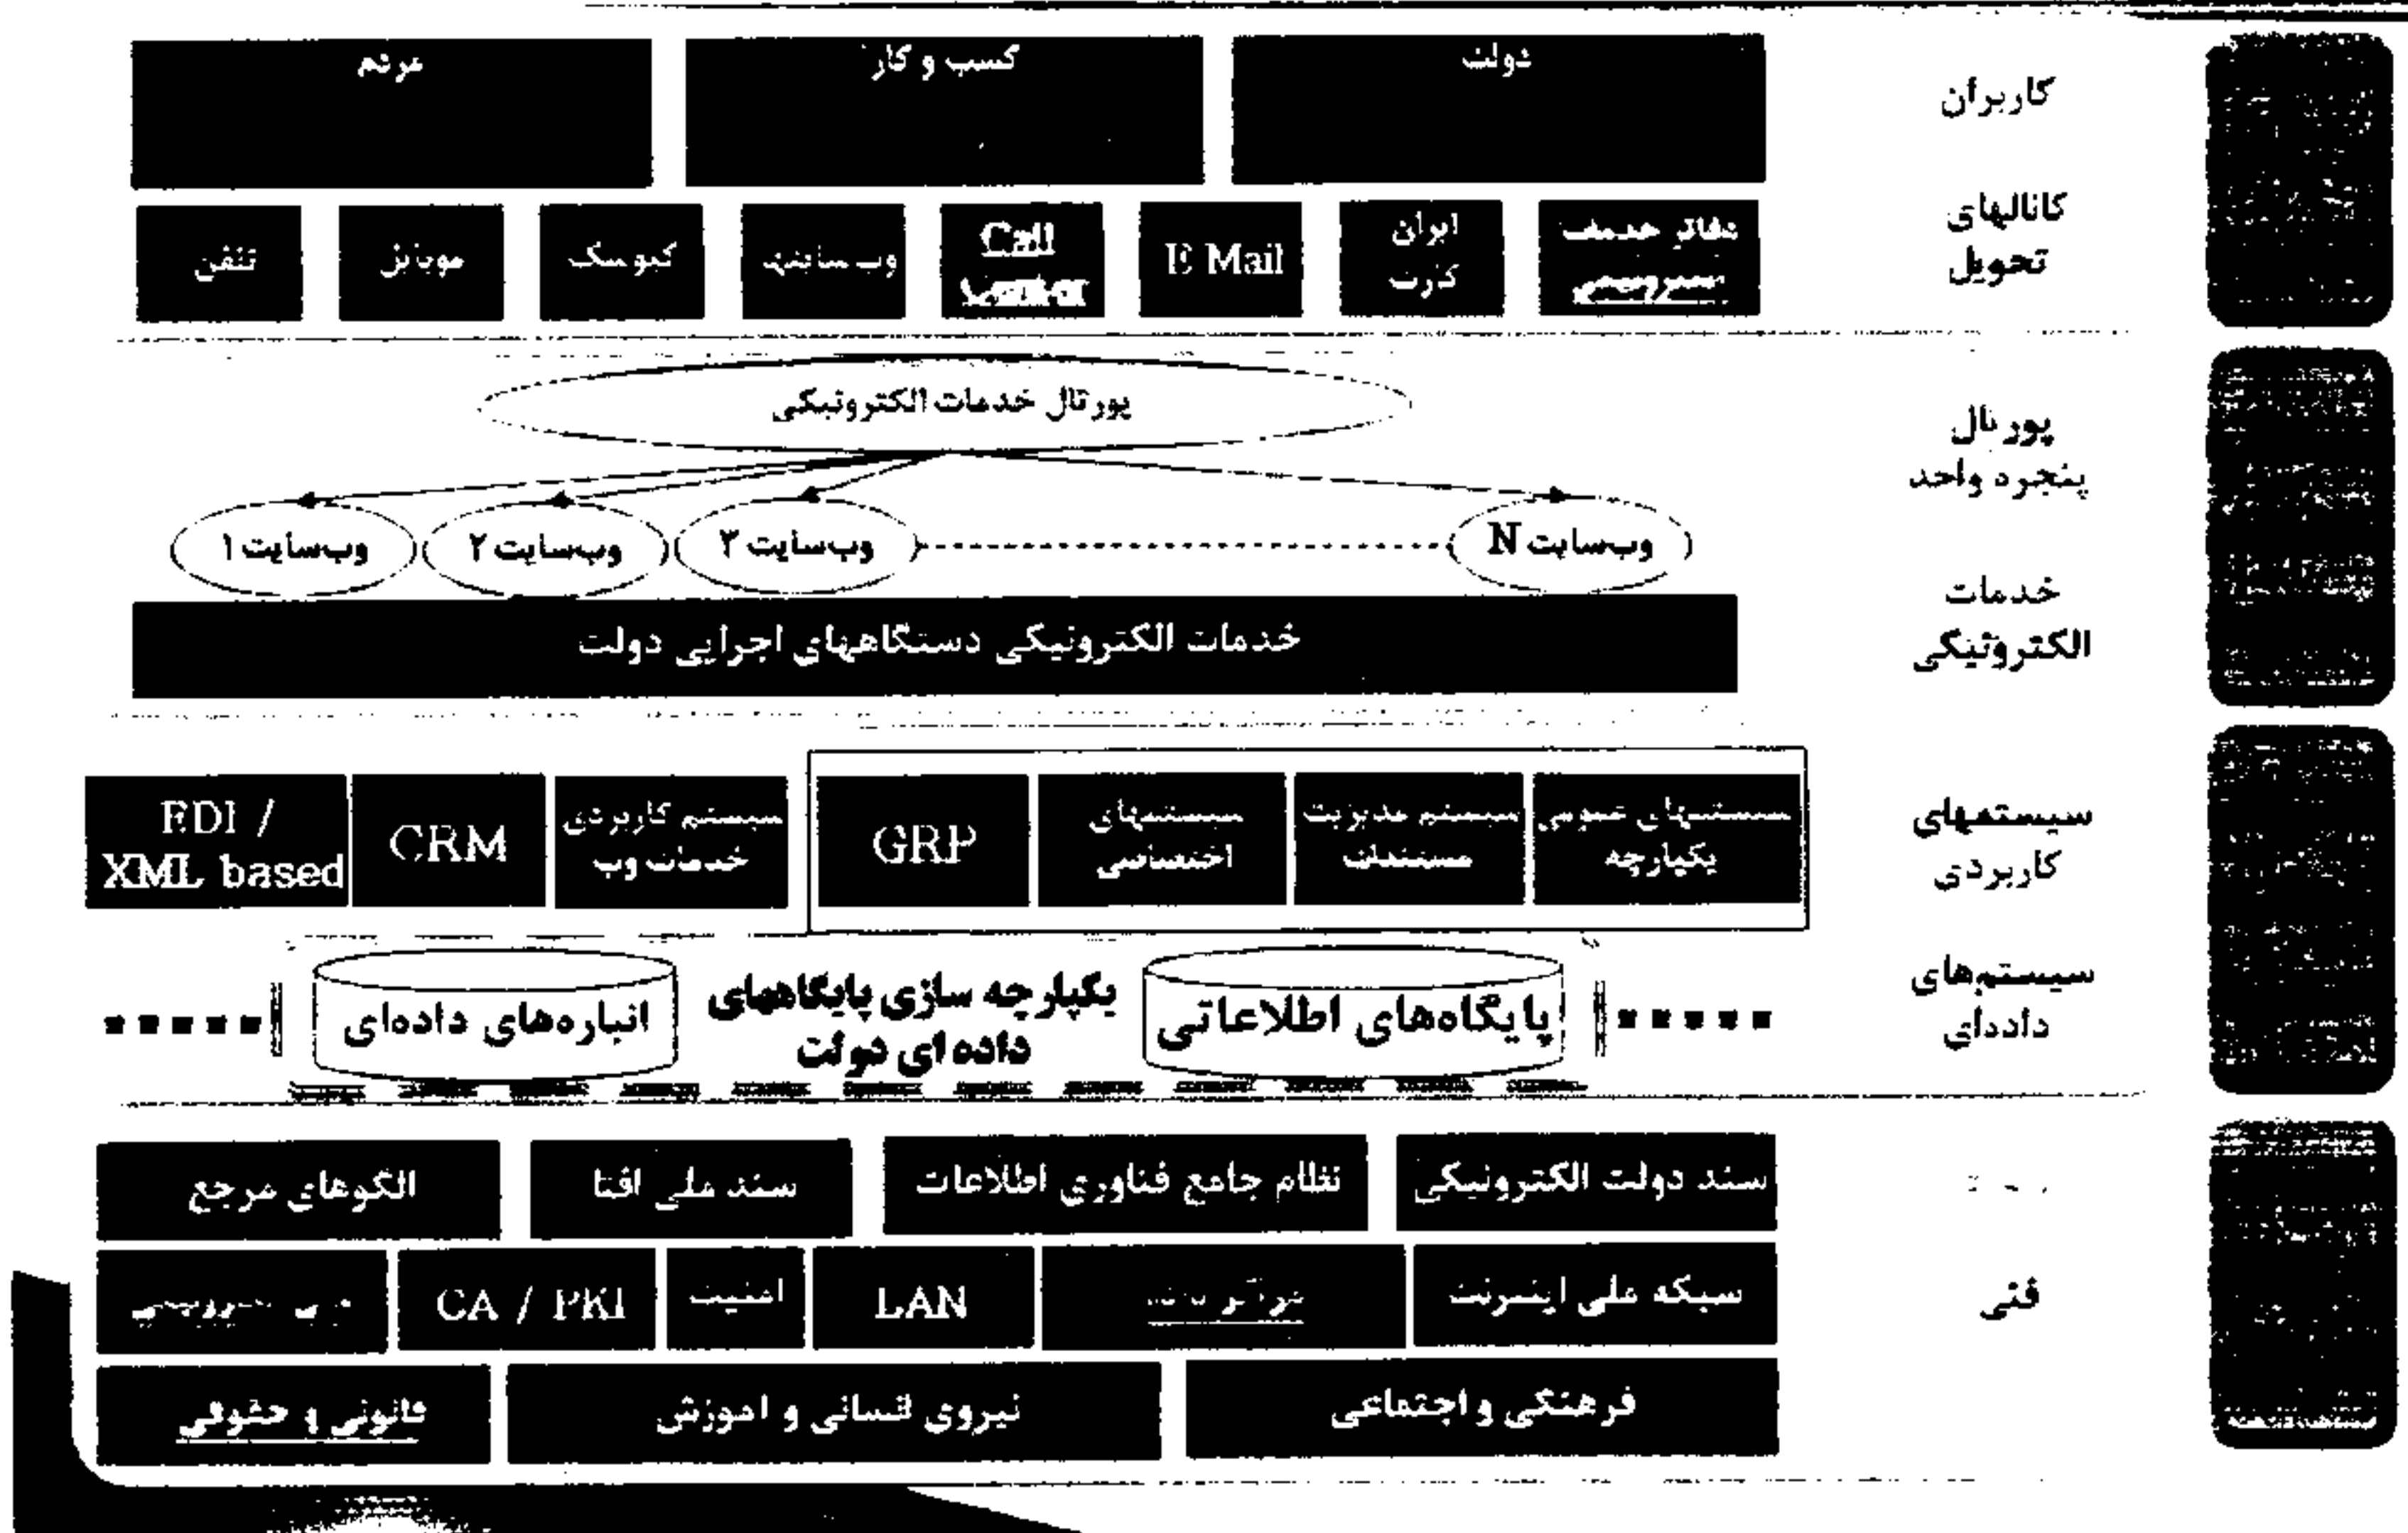 کاربران
دولت
کسب و کار
مردم
کانالهای
تحویل
دفاتر
ایران
کارت
E Mail
Call
Center
وب سایتها
کیوسک
موبایل
تلفن
پورتال
پنجره واحد
پورتال خدمات الکترونیکی
وب‌سایت ۱
وب‌سایت ۲
وب‌سایت ۳
وب‌سایت N
خدمات
الکترونیکی
خدمات الکترونیکی دستگاههای اجرایی دولت
سیستمهای
کاربردی
سیستمهای عمومی
یکپارچه
سیستم مدیریت
مستندات
سیستمهای
اختصاصی
GRP
سیستم کاربردی
خدمات وب
CRM
EDI /
XML based
سیستم‌های
داده‌ای
پایگاه‌های اطلاعاتی
یکپارچه سازی پایگاههای
داده ای دولت
انباره‌های داده‌ای
سند دولت الکترونیکی
نظام جامع فناوری اطلاعات
سند ملی افتا
الگوهای مرجع
فنی
شبکه ملی اینترنت
LAN
امنیت
CA / PKI
فرهنگی و اجتماعی
نیروی انسانی و آموزش
قانونی و حقوقی